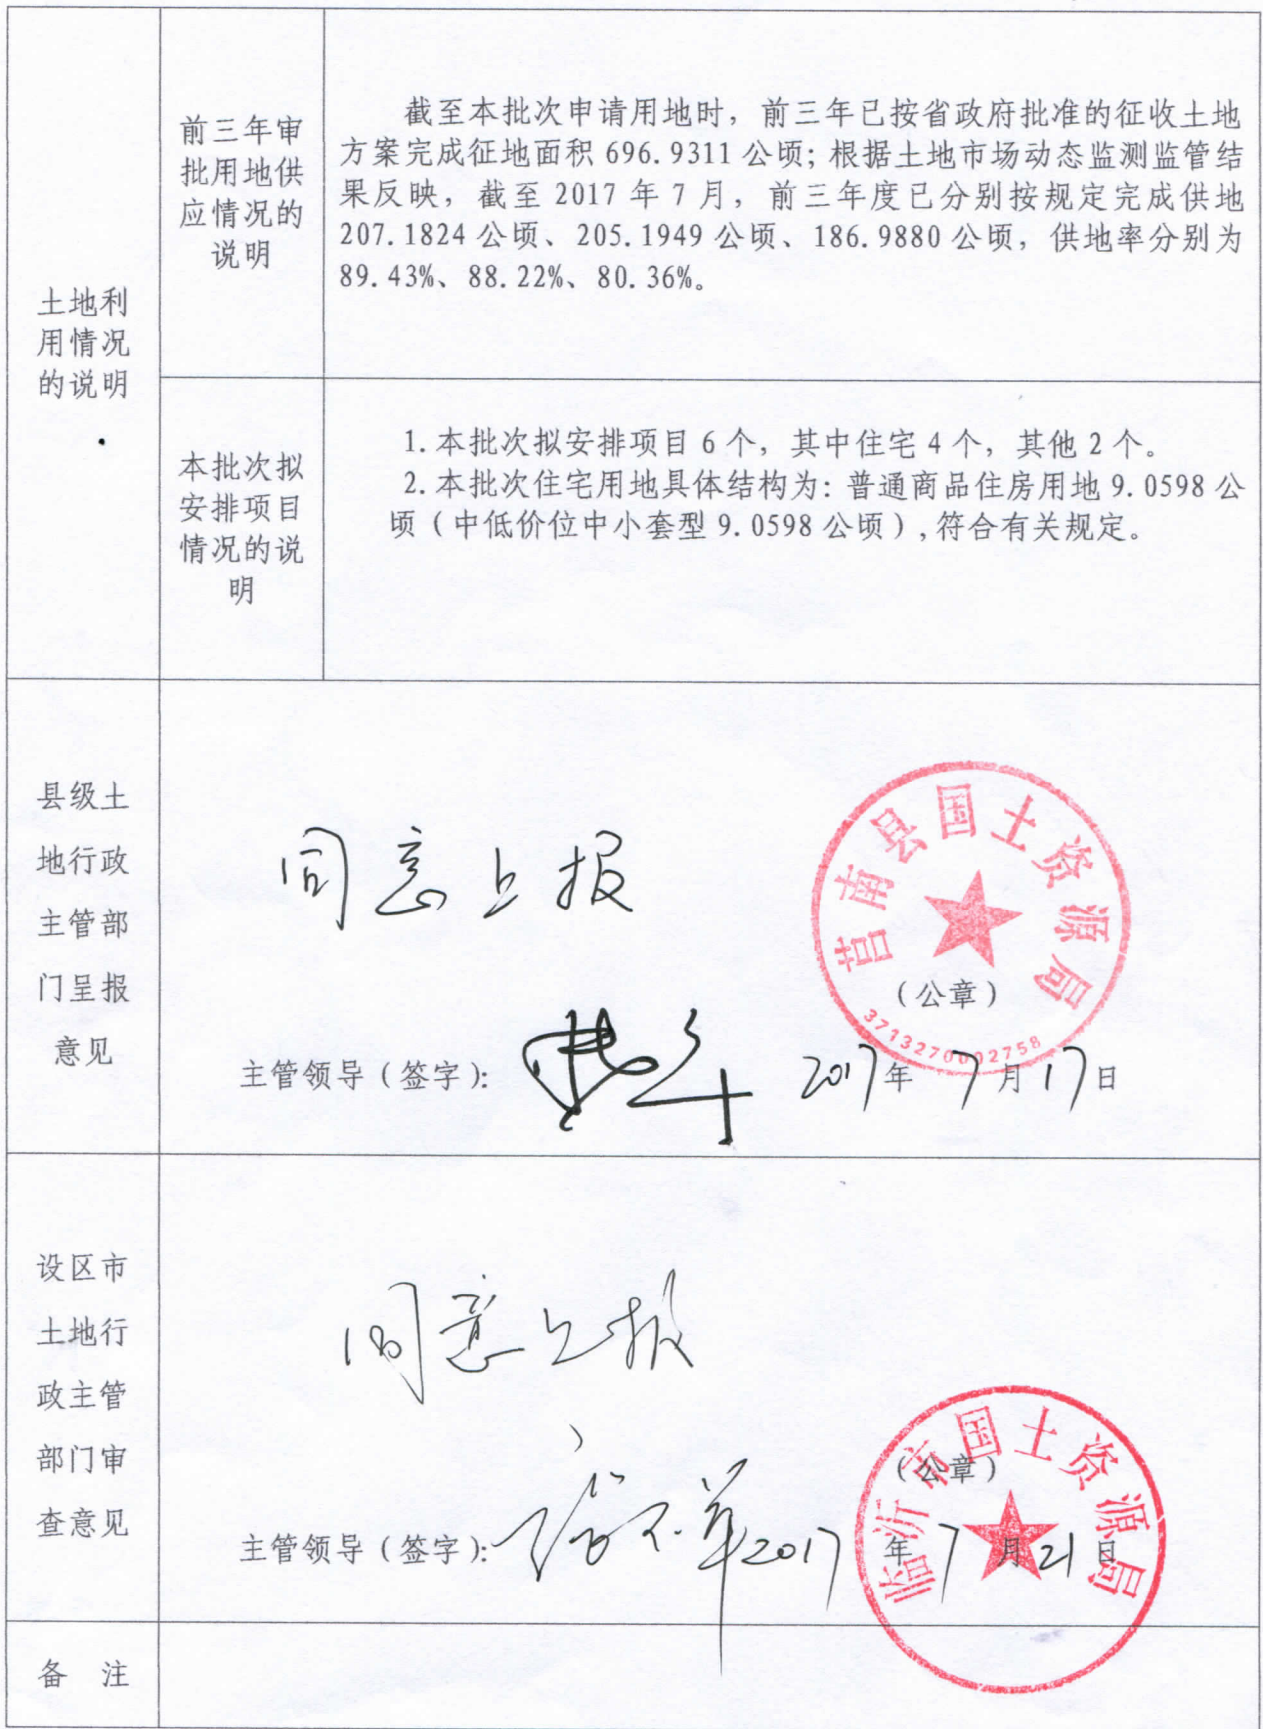 土地利
用情况
的说明
前三年审
批用地供
应情况的
说明
截至本批次申请用地时，前三年已按省政府批准的征收土地
方案完成征地面积 696.9311 公顷；根据土地市场动态监测监管结
果反映，截至 2017 年 7 月，前三年度已分别按规定完成供地
207.1824 公顷、205.1949 公顷、186.9880 公顷，供地率分别为
89.43%、88.22%、80.36%。
本批次拟
安排项目
情况的说
明
1. 本批次拟安排项目 6 个，其中住宅 4 个，其他 2 个。
2. 本批次住宅用地具体结构为：普通商品住房用地 9.0598 公
顷（中低价位中小套型 9.0598 公顷），符合有关规定。
县级土
地行政
主管部
门呈报
意见
同意上报
莒南县国土资源局
（公章）
3713270002758
主管领导（签字）：
2017年 7月17日
设区市
土地行
政主管
部门审
查意见
同意上报
临沂市国土资源局
（公章）
主管领导（签字）：
2017 年 7 月 21 日
备 注